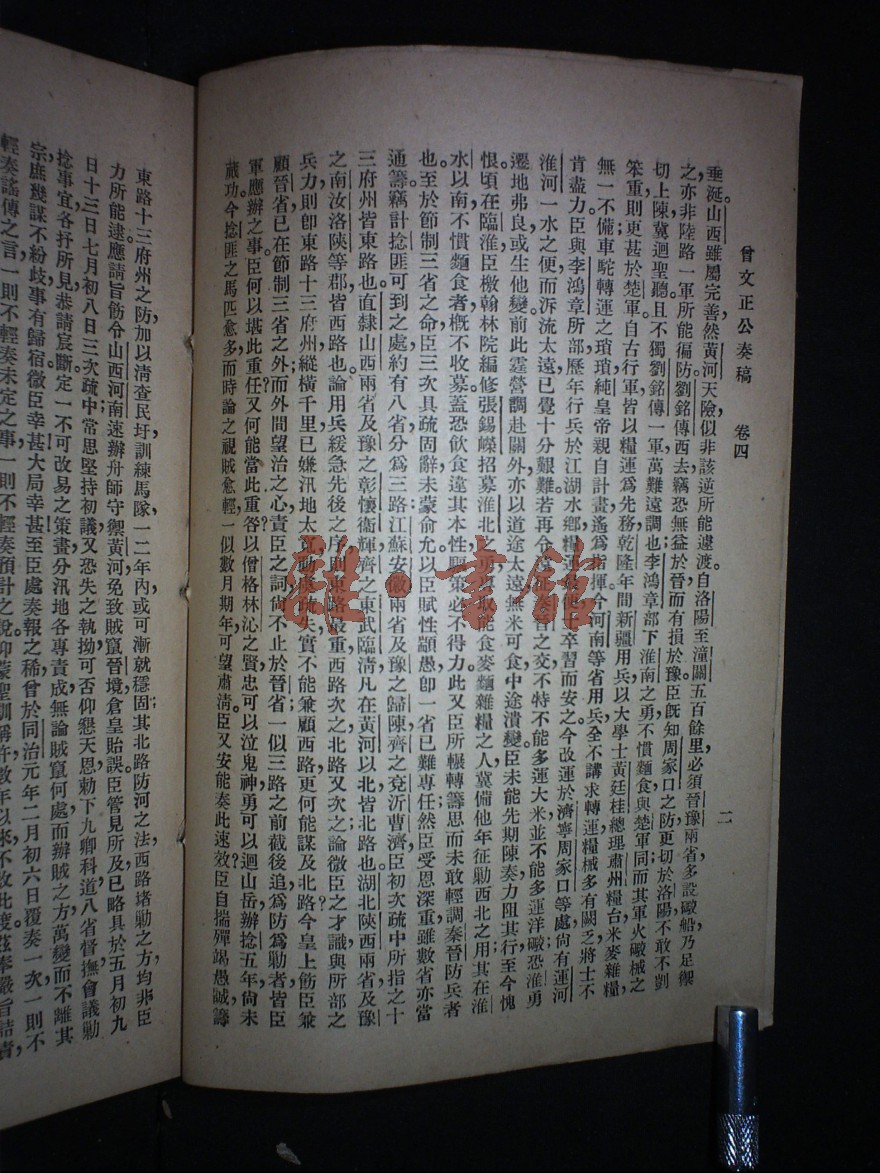 曾文正公奏稿 卷四 二
垂涎。山西雖屬完善，然黃河天險，似非該逆所能遽渡。自洛陽至潼關五百餘里，必須晉豫兩省多設礮船，乃足禦
之，亦非陸路一軍所能偏防。劉銘傳西去，竊恐無益於晉，而有損於豫。臣旣知周家口之防，更切於洛陽，不敢不剴
切上陳，冀迴聖聽。且不獨劉銘傳一軍萬難遠調也，李鴻章部下淮南之勇，不慣麵食，與楚軍同，而其軍火礮械之
笨重，則更甚於楚軍。自古行軍，皆以糧運爲先務，乾隆年間，新疆用兵，以大學士黃廷桂總理肅州糧台，米麥雜糧，
無一不備，車駝轉運之瑣瑣，純皇帝親自計畫，遙爲指揮。今河南等省用兵，全不講求轉運，糧械多有闕乏，將士不
肯盡力。臣與李鴻章所部，歷年行兵於江湖水鄉，糧運
卒習而安之。今改運於濟寧周家口等處，尙有運河
淮河一水之便，而泝流太遠，已覺十分艱難。若再令
之交，不特不能多運大米，並不能多運洋礮，恐淮勇
遷地弗良，或生他變。前此霆營調赴關外，亦以道途太遠，無米可食，中途潰變，臣未能先期陳奏，力阻其行，至今愧
恨。頃在臨淮，檄翰林院編修張錫嶸招募淮北之勇
能食麥麵雜糧之人，冀備他年征勦西北之用。其在淮
水以南，不慣麵食者，槪不收募，蓋恐飲食違其本性，驅策必不得力。此又臣所輾轉籌思，而未敢輕調秦晉防兵者
也。至於節制三省之命，臣三次具疏固辭，未蒙俞允。以臣賦性顓愚，卽一省已難專任，然臣受恩深重，雖數省亦當
通籌。竊計捻匪可到之處，約有八省，分爲三路：江蘇安徽兩省，及豫之歸陳，齊之兗沂曹濟，臣初次疏中所指之十
三府州，皆東路也。直隸山西兩省，及豫之彰懷衞輝，齊之東武臨淸，凡在黃河以北，皆北路也。湖北陝西兩省，及豫
之南汝洛陝等郡，皆西路也。論用兵緩急先後之序，則東路最重，西路次之，北路又次之。論微臣之才識，與所部之
兵力，則卽東路十三府州，縱橫千里，已嫌汛地太
疏失，實不能兼顧西路，更何能謀及北路。今皇上飭臣兼
顧晉省，已在節制三省之外，而外間望治之心，責臣之詞，尙不止於晉省，一似三路之前截後追，爲防爲勦者，皆臣
軍應辦之事，臣何以堪此重任，又何能當此重咎？以僧格林沁之賢，忠可以泣鬼神，勇可以迴山岳，辦捻五年，尙未
蕆功，今捻匪之馬匹愈多，而時論之視賊愈輕，一似數月期年，可望肅淸。臣又安能奏此速效？臣自揣殫竭愚誠，籌
東路十三府州之防，加以淸查民圩，訓練馬隊，一二年內，或可漸就穩固；其北路防河之法，西路堵勦之方，均非臣
力所能逮，應請旨飭令山西河南速辦舟師，守禦黃河，免致賊竄晉境，倉皇貽誤。臣管見所及，已略具於五月初九
日十三日七月初八日三次疏中，常思堅持初議，又恐失之執拗，可否仰懇天恩，勅下九卿科道八省督撫會議勦
捻事宜，各抒所見，恭請宸斷，定一不可改易之策，畫分汛地，各專責成，無論賊竄何處，而辦賊之方，萬變而不離其
宗，庶幾謀不紛歧，事有歸宿，微臣幸甚！大局幸甚！至臣處奏報之稀，曾於同治元年二月初六日覆奏一次，一則不
輕奏謠傳之言，一則不輕奏未定之事，一則不輕奏預計之說，仰蒙聖訓稱許，數年以來，不改此度。茲奉嚴旨詰責，